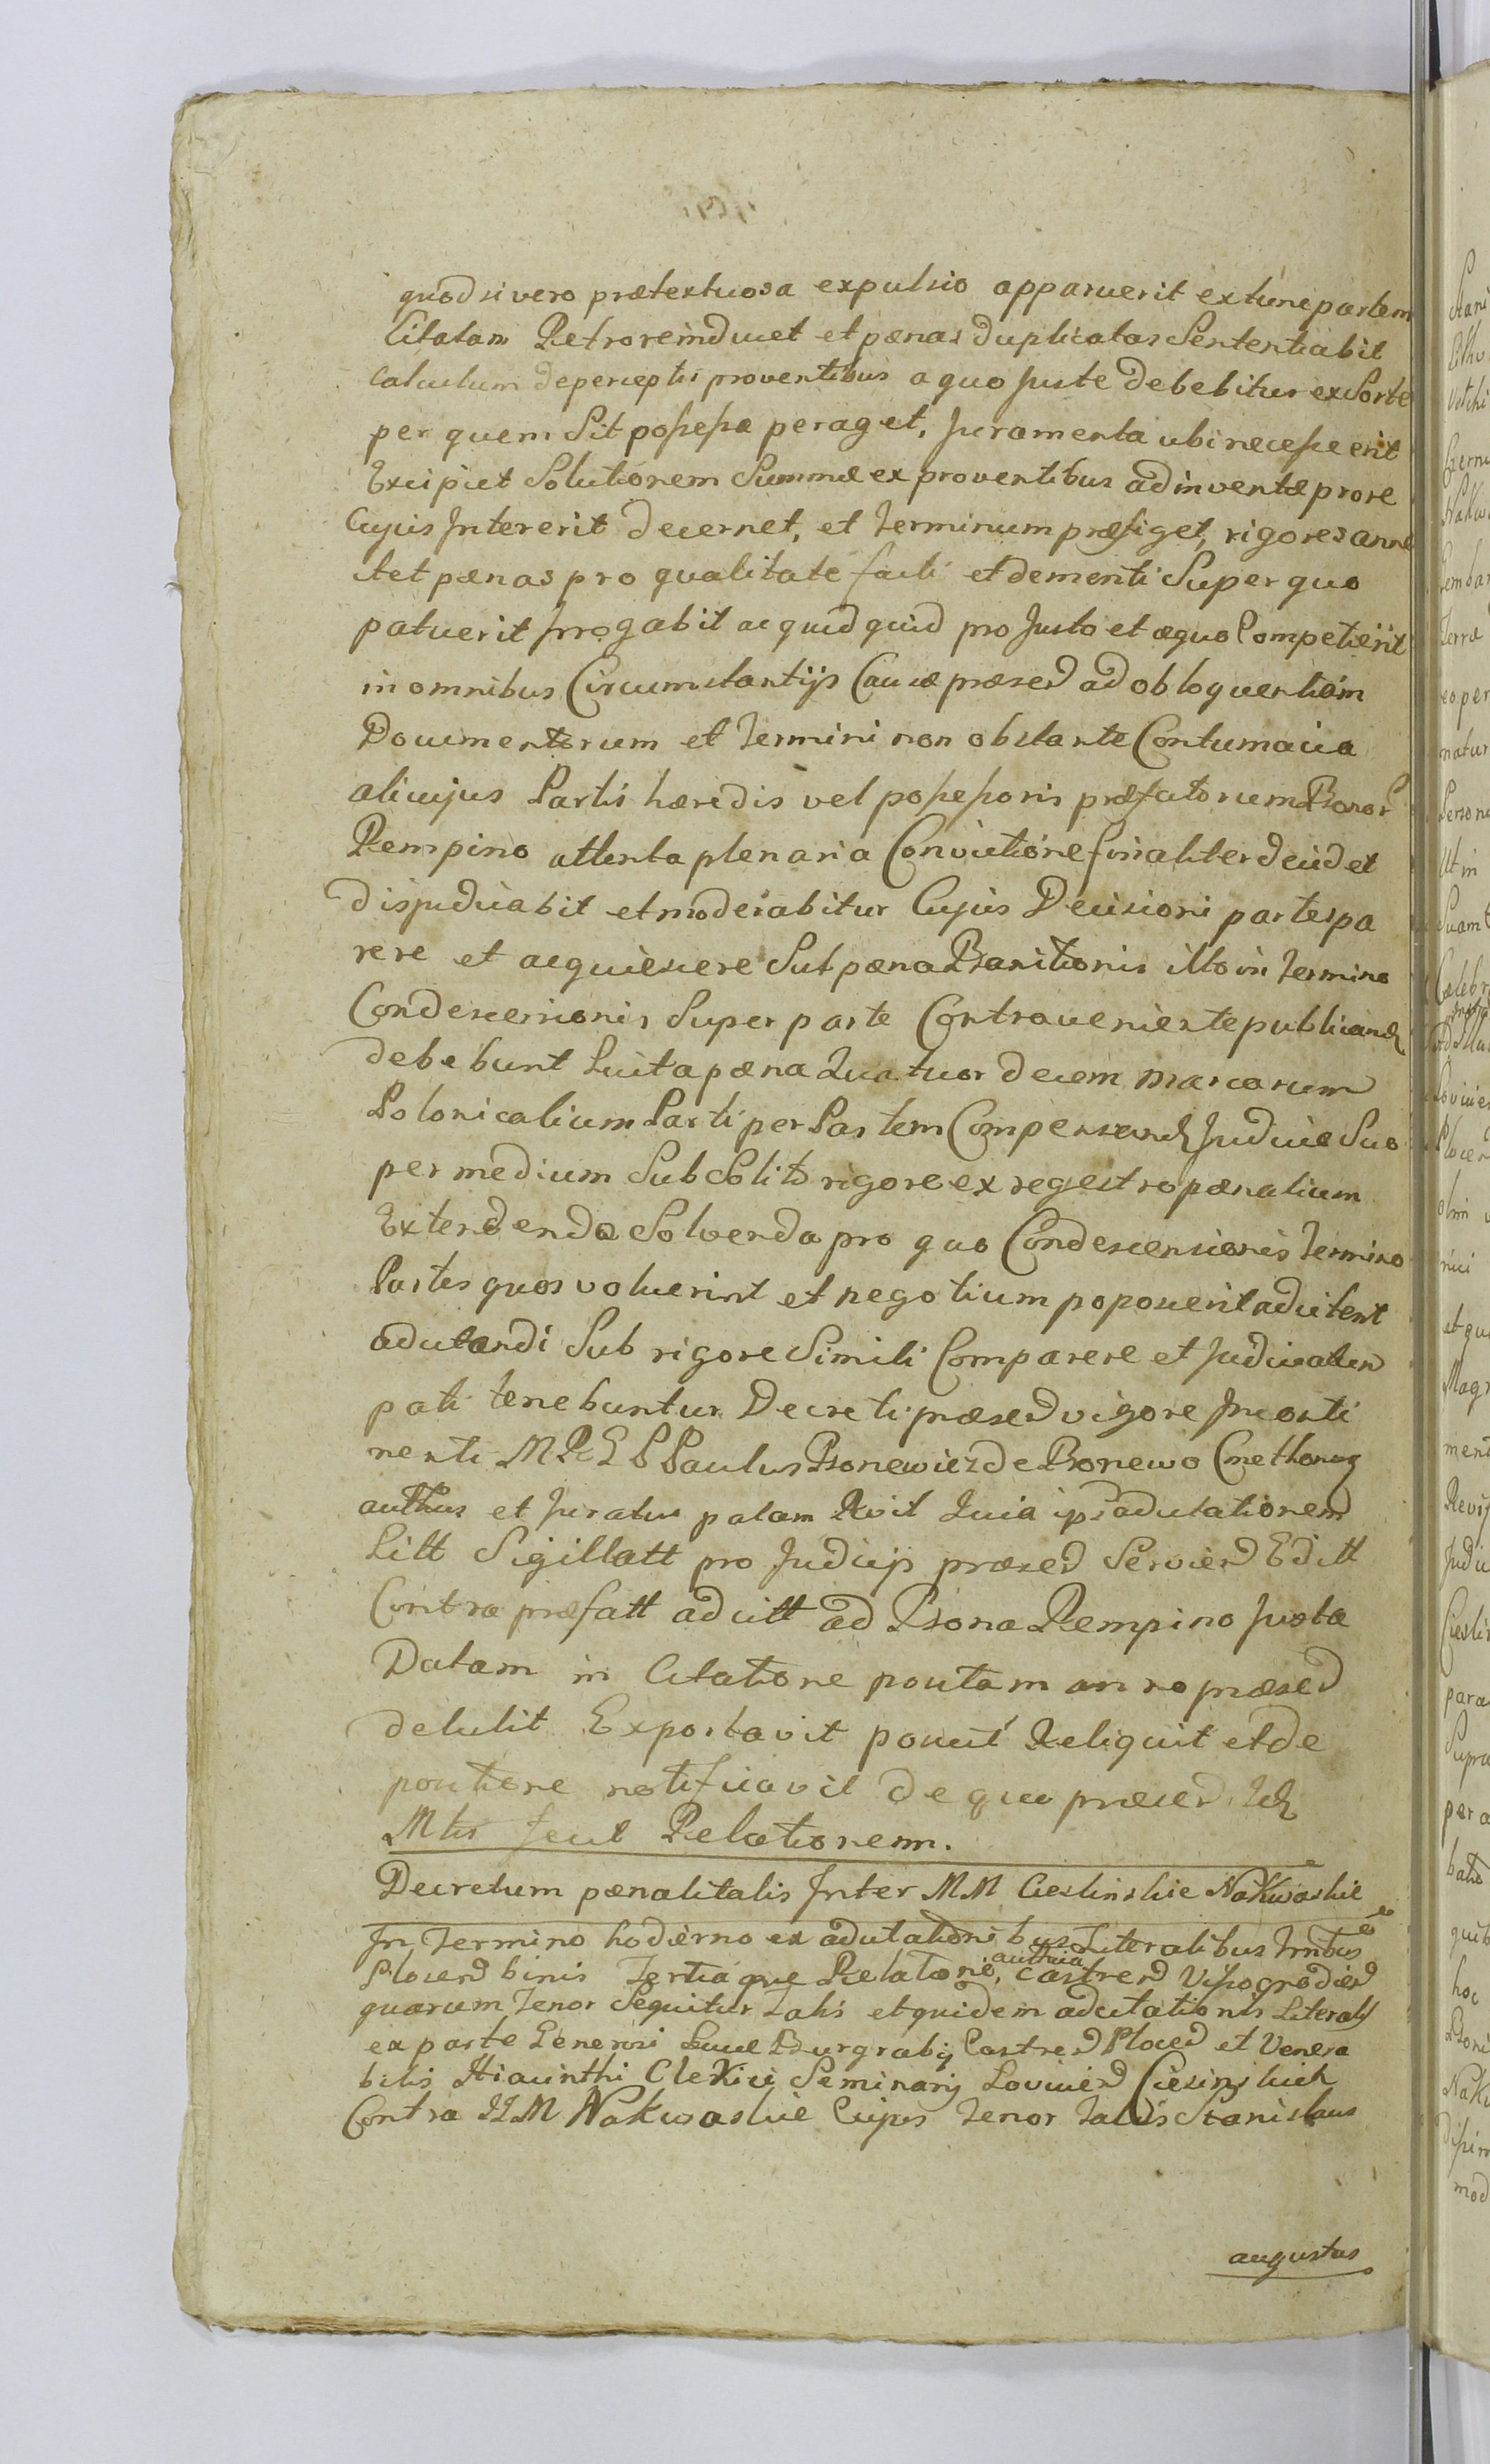 quodsi vero prætextuosa expulsio apparuerit extunc partem
Citatam Retroreinducet et pænas duplicatas Sententiabit
Calculum de perceptis proventibus a quo Juste debebitur ex Sorte
per quem Sit possessa peraget, Juramenta ubi necesse erit
Excipiet Solutionem Summæ ex proventibus adinventæ pro re
Cujus Intererit decernet, et Terminum præfiget, rigores anne
ctet pænas pro qualitate facti et dementi Super quo
patuerit Irrogabit ac quidquid pro Justo et æquo Competierit
in omnibus Circumstantijs Causæ præsend ad obloquentiam
Documentorum et Termini non obstante Contumacia
alicujus Partis hæredis vel possessoris præfatorum Bonor
Rempino attenta plenaria Convictione finaliter decidet
dispudicabit et moderabitur Cujus Decisioni partes pa
rere et acquiescere Sub pæna Banitionis illo in Termino
Condescensionis Super parte Contraveniente publicand
debebunt Luita pæna Quatuordecem Marcarum
Polonicalium Parti per Partem Compensand Judicio Suo
per medium Sub Solito rigore ex regestro pænalium
Extendenda Solvenda pro quo Condescensionis Termino
Partes quos voluerint et negotium poposcerit adcitent
adcitandi Sub rigore Simili Comparere et Judicatum
pati tenebuntur Decreti præsend vigore Inconti
nenti MRGL Paulus Bonewicz de Bonewo Cmethonum
authus et Juratus palam Rvit Quia ips adcitationem
Litt Sigillatt pro Judicijs præsend Serviend Editt
Contra præfatt adcitt ad Bona Rempino Juxta
Datam in Citatione positam anno præsend
detulit Exportavit posuit Reliquit et de
positione notificavit de quo præsend
Mtis fecit Relationem.
Decretum pænalitatis Inter MM Cieslinskie Nakwaskie
In Termino hodierno ex adcitationibus Literalibus Trribus
Plocend binis Tertiaque Relatione, authica castrend Vissogrodiend
quarum Tenor Sequitur Talis et quidem adcitationis Literalis
ex parte Generosi Lucæ Burgrabij Castrend Plocend et Venera
bilis Hiacinthi Clerici Seminarij Loviciend Ciesinskich
Contra GGM Nakwaskie Cujus Tenor Talis Stanislaus
augustus